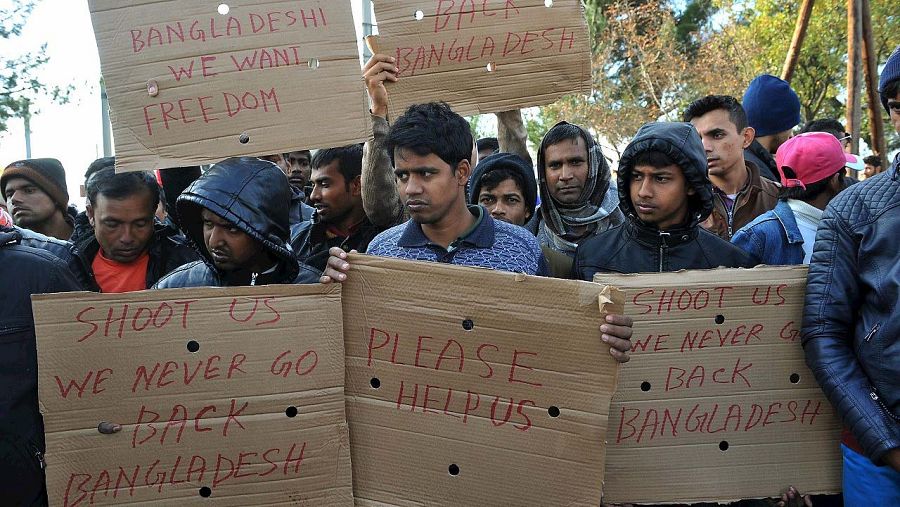 BANGLADESHI
WE WANT
FREEDOM
BACK
BANGLADESH
SHOOT US
WE NEVER GO
BACK
BANGLADESH
PLEASE
HELP US
SHOOT US
WE NEVER GO
BACK
BANGLADESH